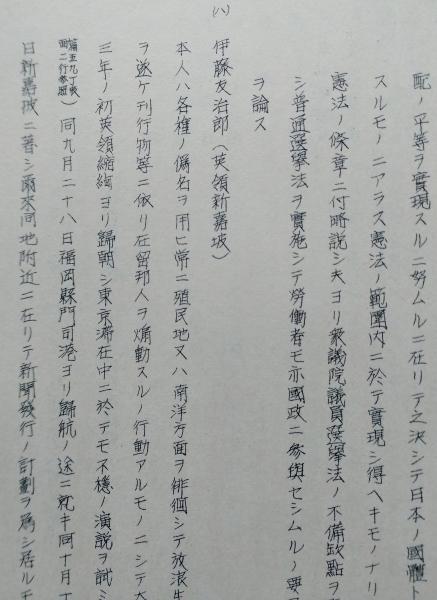 (八)
配ノ平等ヲ實現スルニ努ムルニ在リテ之決シテ日本ノ國體ト
スルモノニアラス憲法ノ範圍内ニ於テ實現シ得ヘキモノナリ
憲法ノ條章ニ付略説シ夫ヨリ衆議院議員選擧法ノ不備缺點ヲ
シ普通選擧法ヲ實施シテ勞働者モ亦國政ニ參與セシムルノ要
ヲ論ス
伊藤友治郎(英領新嘉坡)
本人ハ各種ノ僞名ヲ用ヒ常ニ殖民地又ハ南洋方面ヲ徘徊シテ放浪生
ヲ遂ケ刊行物等ニ依リ在留邦人ヲ煽動スルノ行動アルモノニシテ大
三年ノ初英領緬甸ヨリ歸朝シ東京滯在中ニ於テモ不穩ノ演説ヲ試ミ
面二行參照)同九月二十八日福岡縣門司港ヨリ歸航ノ途ニ就キ同十月十
日新嘉坡ニ著シ爾來同地附近ニ在リテ新聞發行ノ計劃ヲ爲シ居ルモ